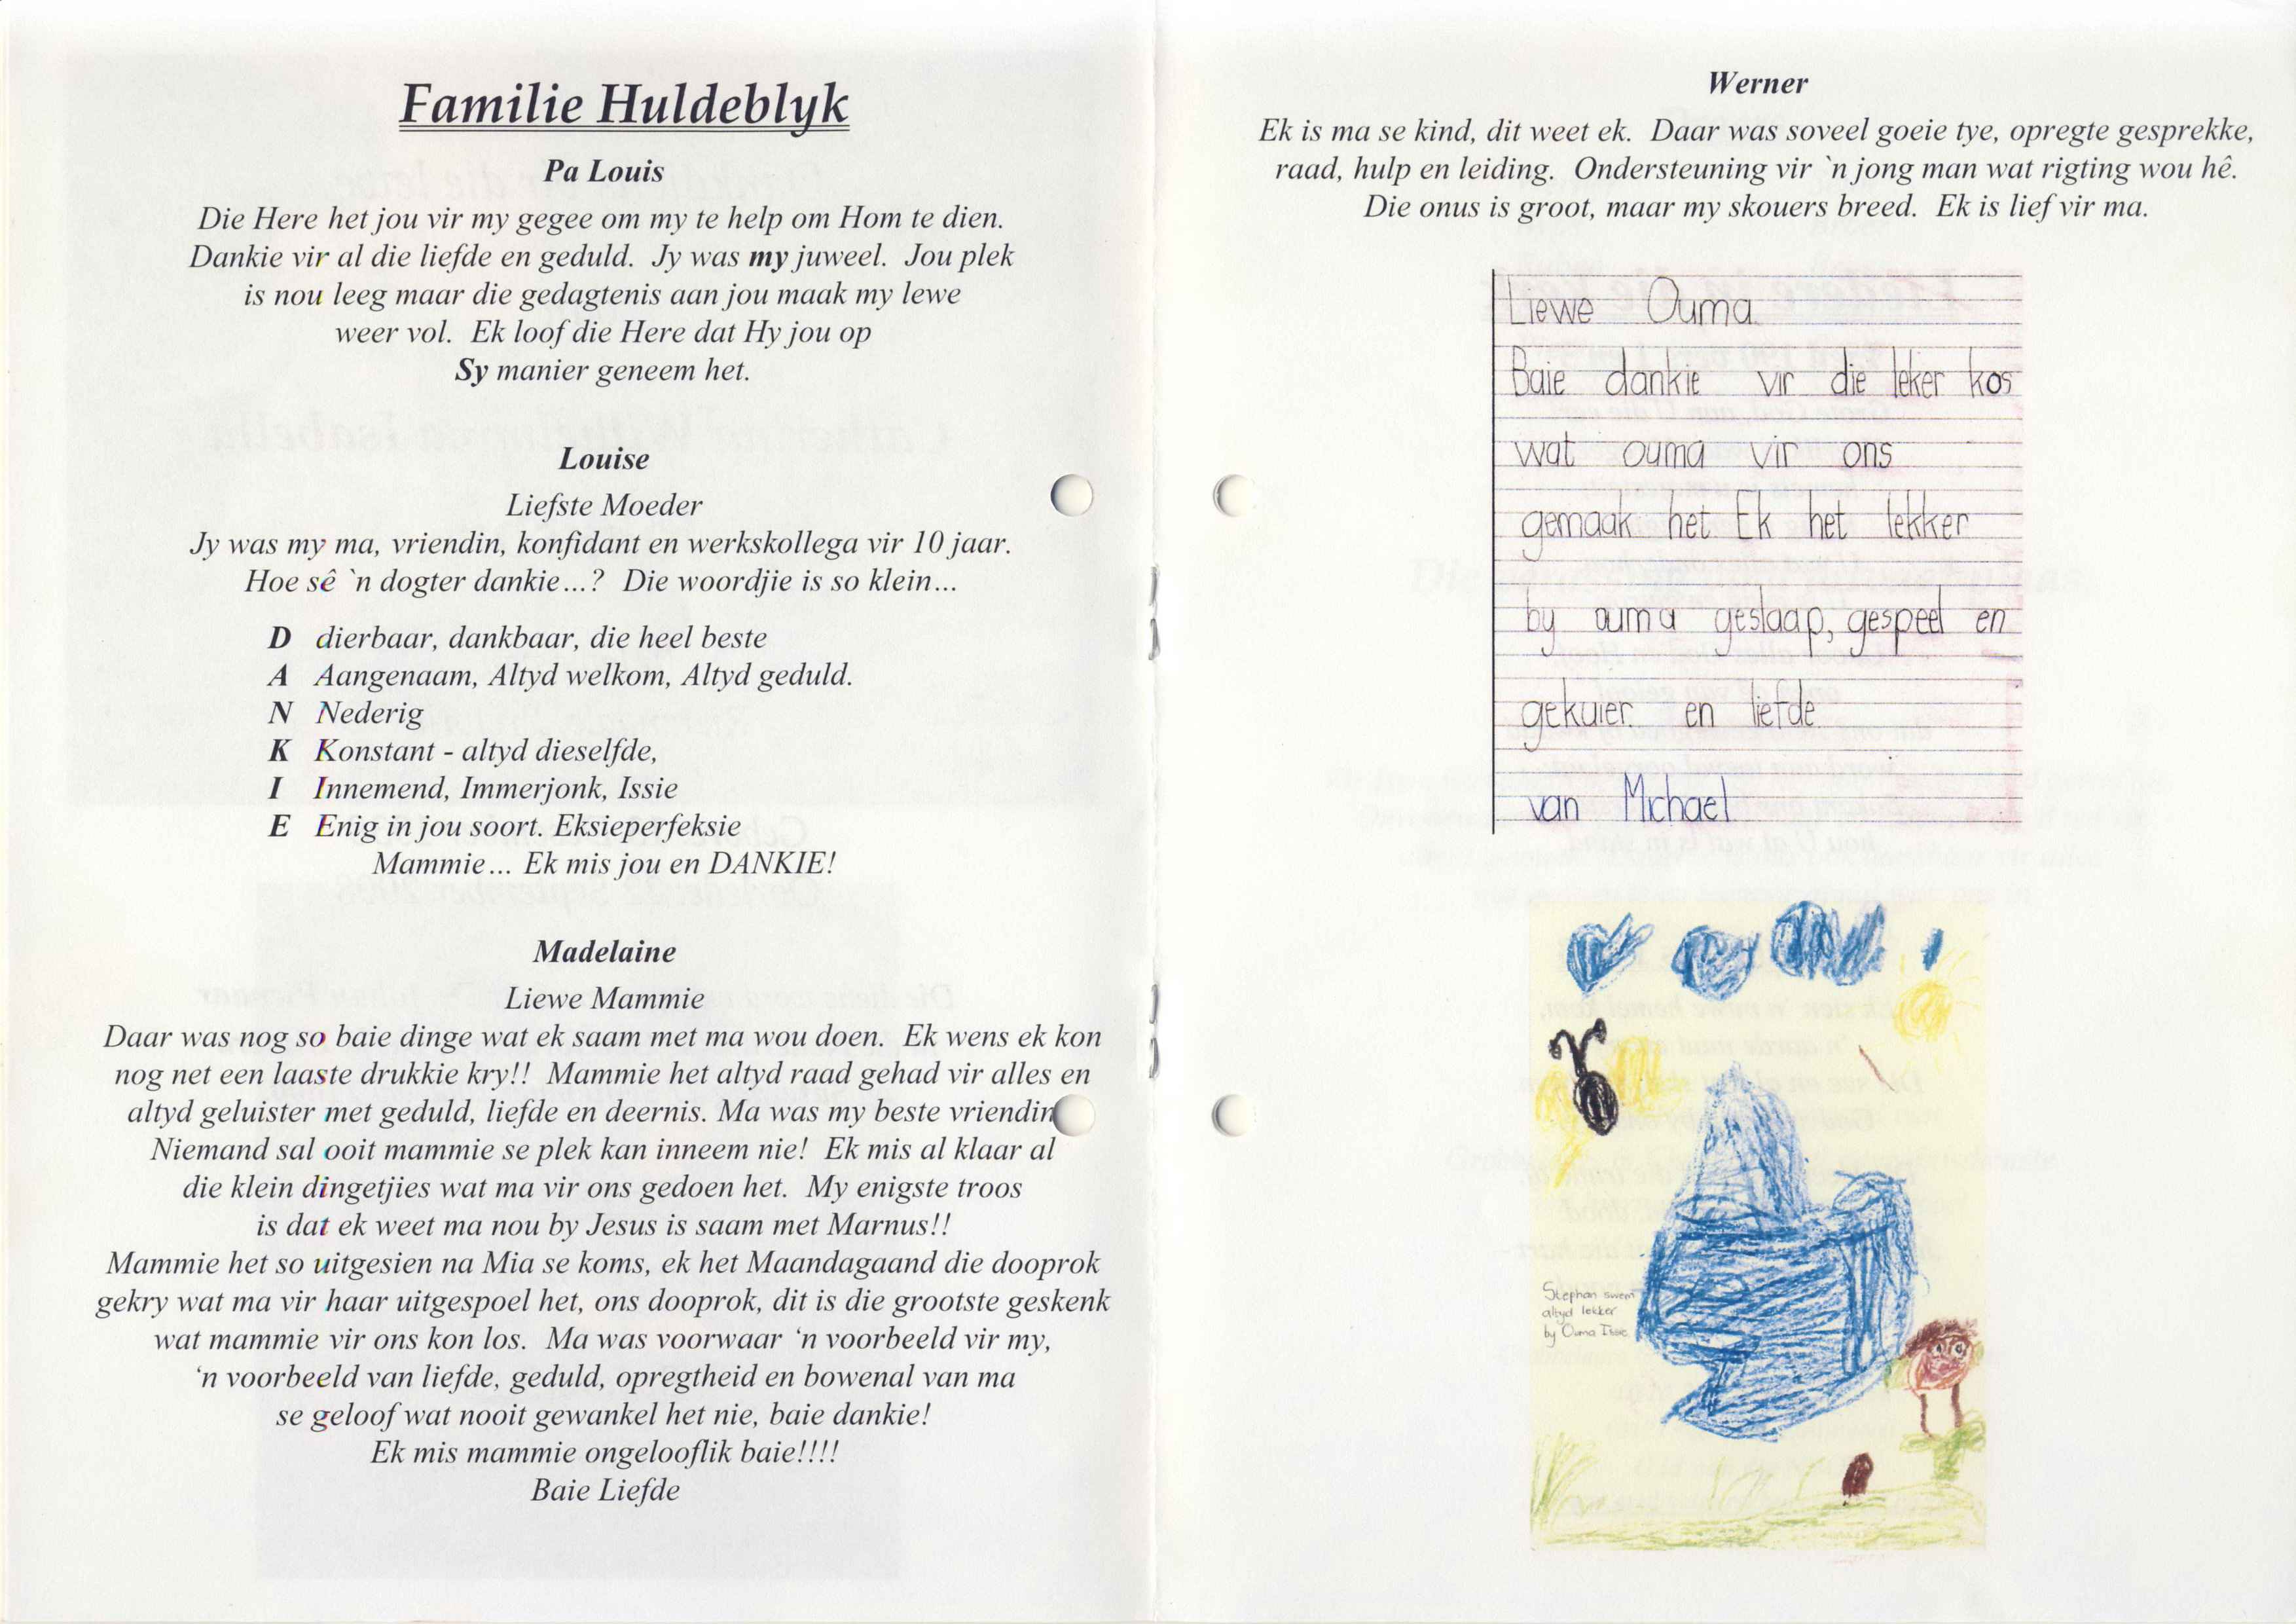 Familie Huldeblyk
Pa Louis
Die Here het jou vir my gegee om my te help om Hom te dien.
Dankie vir al die liefde en geduld.  Jy was my juweel.  Jou plek
is nou leeg maar die gedagtenis aan jou maak my lewe
weer vol.  Ek loof die Here dat Hy jou op
Sy manier geneem het.
Louise
Liefste Moeder
Jy was my ma, vriendin, konfidant en werkskollega vir 10 jaar.
Hoe sê `n dogter dankie...?  Die woordjie is so klein...
D dierbaar, dankbaar, die heel beste
A Aangenaam, Altyd welkom, Altyd geduld.
N Nederig
K Konstant - altyd dieselfde,
I Innemend, Immerjonk, Issie
E Enig in jou soort. Eksieperfeksie
Mammie... Ek mis jou en DANKIE!
Madelaine
Liewe Mammie
Daar was nog so baie dinge wat ek saam met ma wou doen.  Ek wens ek kon
nog net een laaste drukkie kry!!  Mammie het altyd raad gehad vir alles en
altyd geluister met geduld, liefde en deernis. Ma was my beste vriendin
Niemand sal ooit mammie se plek kan inneem nie!  Ek mis al klaar al
die klein dingetjies wat ma vir ons gedoen het.  My enigste troos
is dat ek weet ma nou by Jesus is saam met Marnus!!
Mammie het so uitgesien na Mia se koms, ek het Maandagaand die dooprok
gekry wat ma vir haar uitgespoel het, ons dooprok, dit is die grootste geskenk
wat mammie vir ons kon los.  Ma was voorwaar ‘n voorbeeld vir my,
‘n voorbeeld van liefde, geduld, opregtheid en bowenal van ma
se geloof wat nooit gewankel het nie, baie dankie!
Ek mis mammie ongelooflik baie!!!!
Baie Liefde
Werner
Ek is ma se kind, dit weet ek.  Daar was soveel goeie tye, opregte gesprekke,
raad, hulp en leiding.  Ondersteuning vir `n jong man wat rigting wou hê.
Die onus is groot, maar my skouers breed.  Ek is lief vir ma.
Liewe Ouma
Baie dankie vir die leker kos
wat ouma vir ons
gemaak het Ek het lekker
by ouma geslaap, gespeel en
gekuier. en liefde
van Michael
Stephan swem
altyd lekker
by Ouma Issie